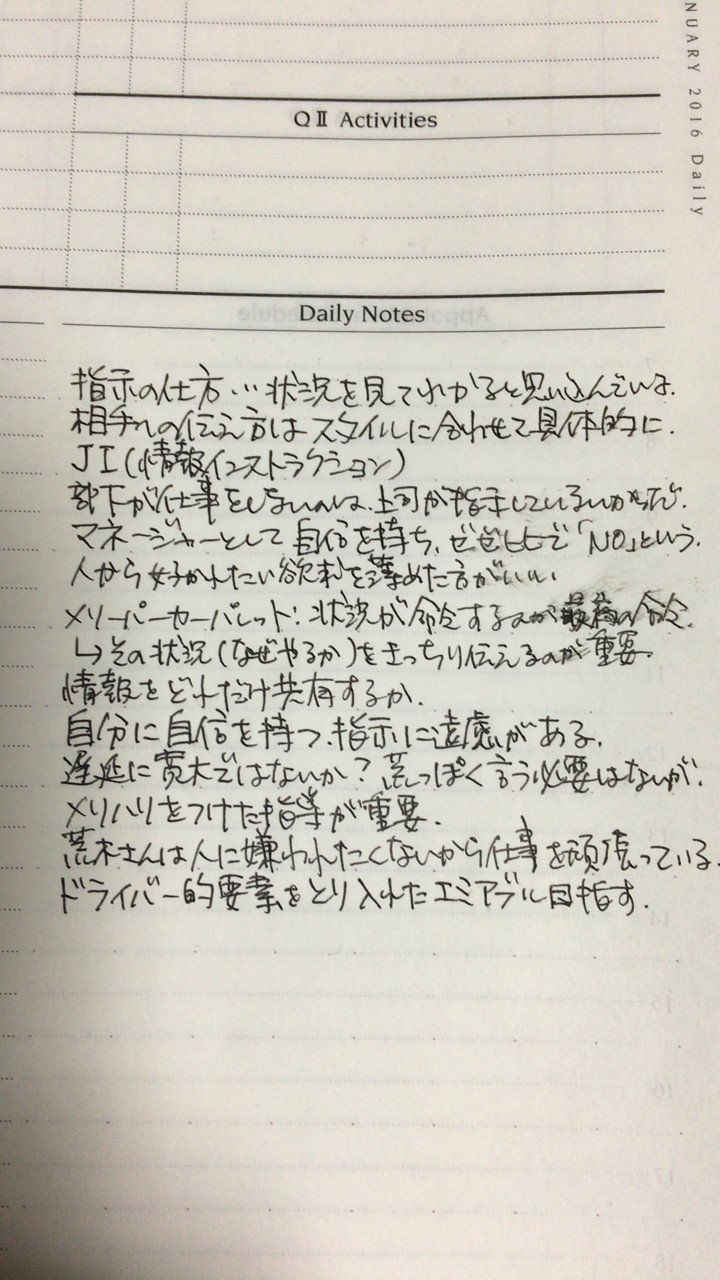 NUARY 2016 Daily
Q II Activities
Daily Notes
指示の仕方…状況を見てわかると思い込んでいる.
相手への伝え方はスタイルに合わせて具体的に.
JI(情報インストラクション)
部下が仕事をしないのは、上司が指示していないからだ.
マネージャーとして自信を持ち、ぜぜヒヒで「NO」という.
人から好かれたい欲求を薄めた方がいい
メリーパーカーパレット:状況が命令するのが最高の命令.
↳その状況(なぜやるか)をきっちり伝えるのが重要.
情報をどれだけ共有するか.
自分に自信を持つ、指示に遠慮がある.
遅延に寛大ではないか?荒っぽく言う必要はないが、
メリハリをつけた指導が重要.
荒木さんは人に嫌われたくないから仕事を頑張っている.
ドライバー的要素をとり入れたエミアブル目指す.